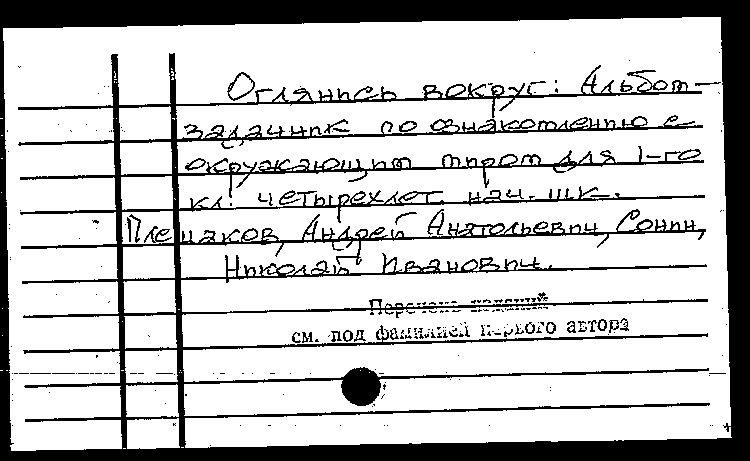 Оглянись вокруг: Альбом-
задачник по ознакомлению с
окружающим миром для 1-го
кл. четырехлет. нач. шк.
Плешаков, Андрей Анатольевич, Сонин,
Николай Иванович.
Перечень изданий
см. под фамилией первого автора